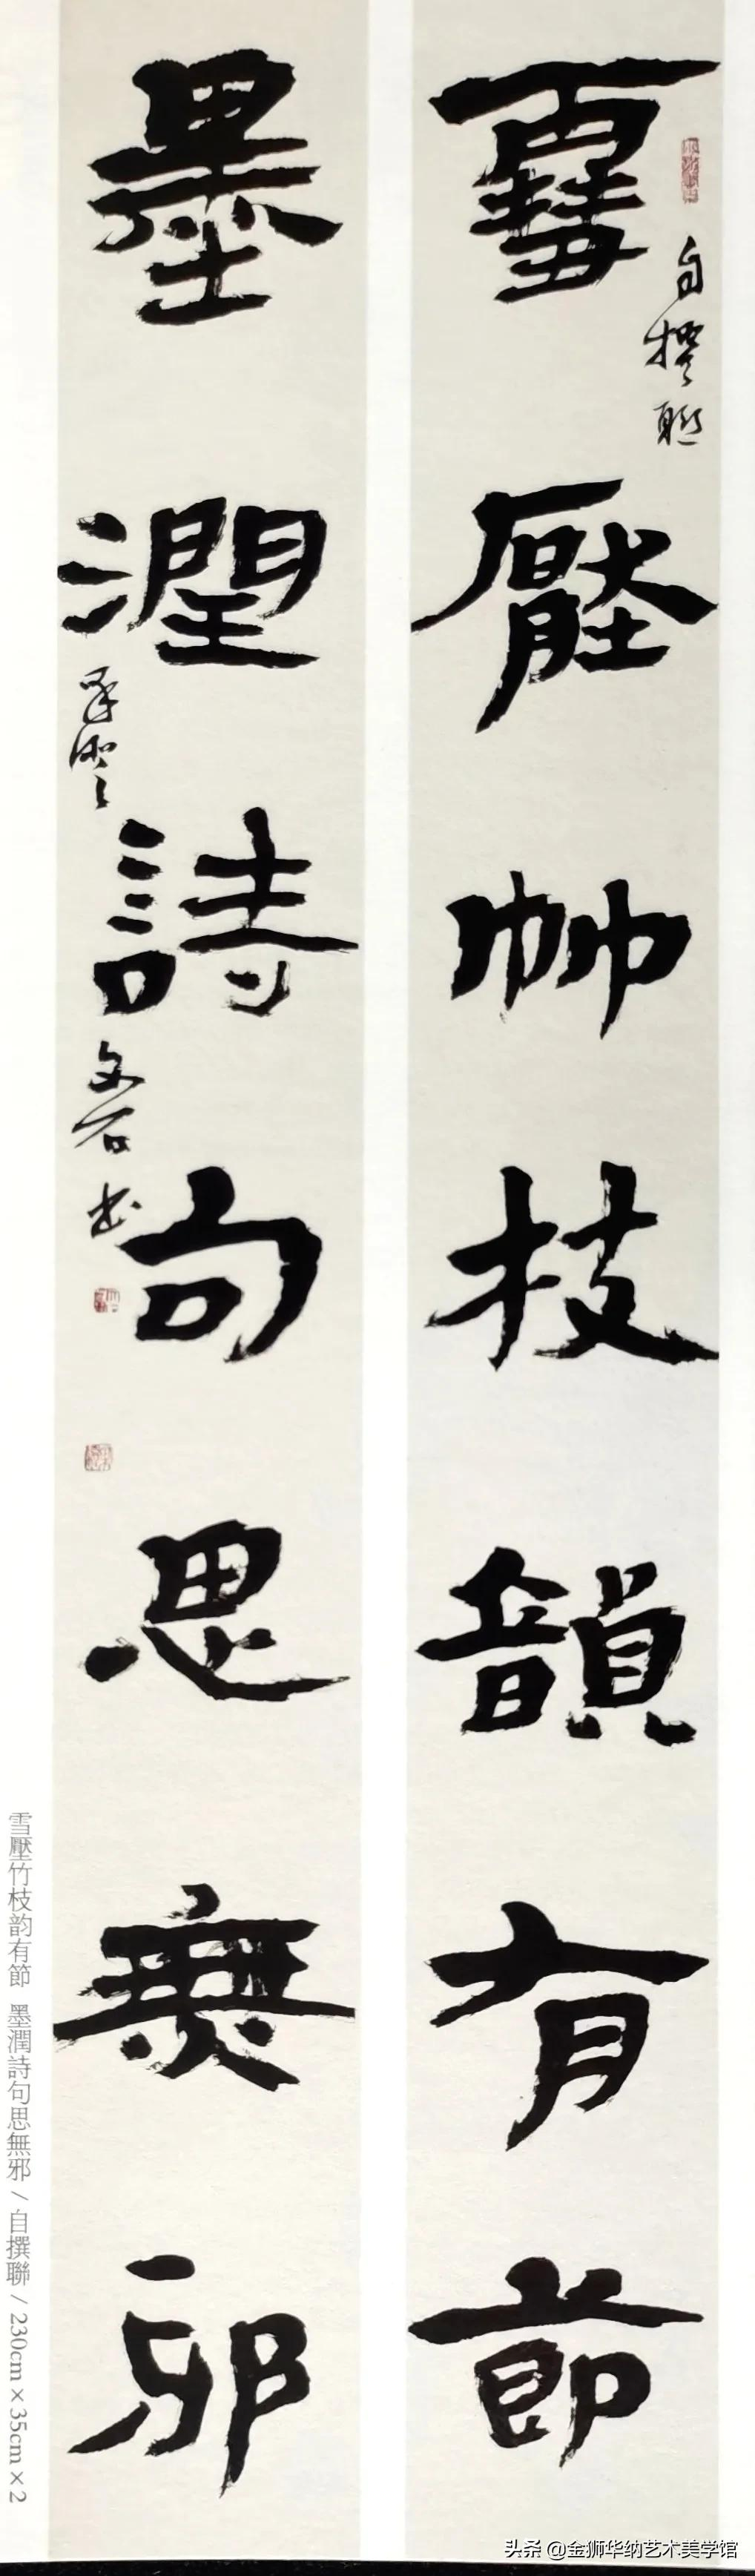 雪壓竹枝韻有節
自撰聯
墨潤詩句思無邪
文石书
雪壓竹枝韵有節 墨潤詩句思無邪 / 自撰聯 / 230cm×35cm×2
头条 @金狮华纳艺术美学馆